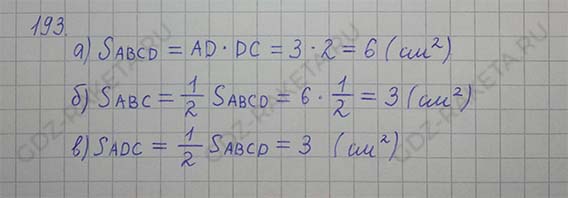 193.
а) SABCD = AD · DC = 3 · 2 = 6 (см²)
б) SABC = 1/2 SABCD = 6 · 1/2 = 3 (см²)
в) SADC = 1/2 SABCD = 3 (см²)
GDZ-RAKETA.RU